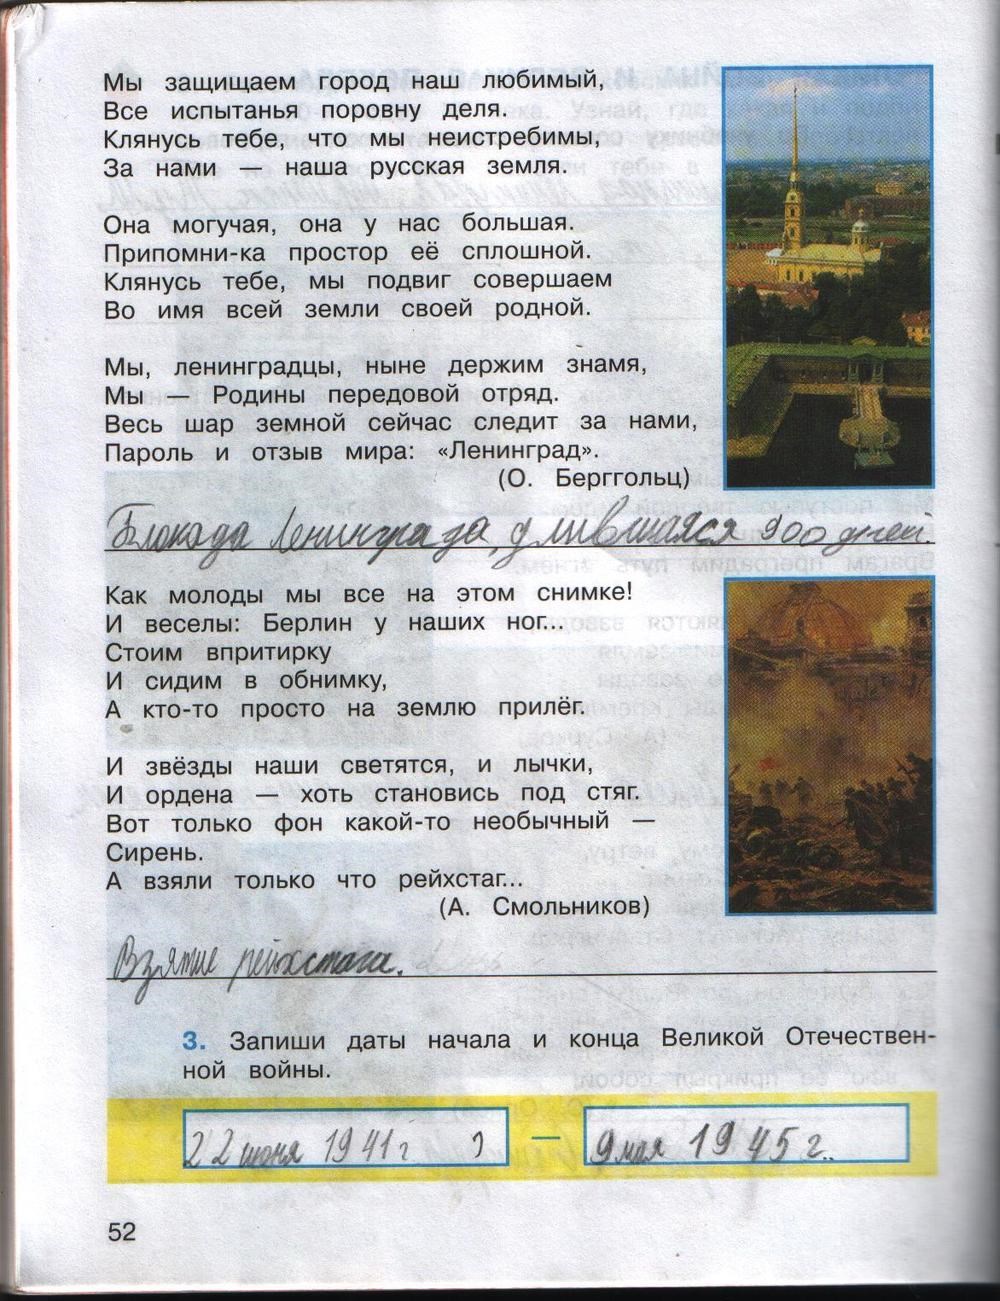 Мы защищаем город наш любимый,
Все испытанья поровну деля.
Клянусь тебе, что мы неистребимы,
За нами — наша русская земля.
Она могучая, она у нас большая.
Припомни-ка простор её сплошной.
Клянусь тебе, мы подвиг совершаем
Во имя всей земли своей родной.
Мы, ленинградцы, ныне держим знамя,
Мы — Родины передовой отряд.
Весь шар земной сейчас следит за нами,
Пароль и отзыв мира: «Ленинград».
(О. Берггольц)
Блокада Ленинграда, длившаяся 900 дней.
Как молоды мы все на этом снимке!
И веселы: Берлин у наших ног...
Стоим впритирку
И сидим в обнимку,
А кто-то просто на землю прилёг.
И звёзды наши светятся, и лычки,
И ордена — хоть становись под стяг.
Вот только фон какой-то необычный —
Сирень.
А взяли только что рейхстаг...
(А. Смольников)
Взятие рейхстага.
3. Запиши даты начала и конца Великой Отечествен-
ной войны.
22 июня 1941 г — 9 мая 1945 г.
52